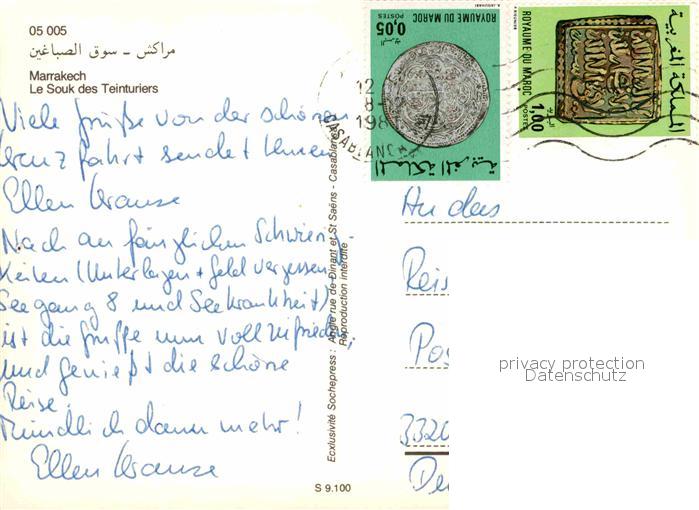 05 005
مراكش ـ سوق الصباغين
Marrakech
Le Souk des Teinturiers
Viele Grüße von der schönen
Kreuzfahrt sendet Ihnen
Ellen Krause
Nach anfänglichen Schwierig-
keiten (Unterlagen + Geld vergessen
Seegang 8 und Seekrankheit)
ist die Gruppe nun voll zufrieden,
und genießt die schöne
Reise.
Mündlich dann mehr!
Ellen Krause
S 9.100
Exclusivité Sochepress : Angle rue de Dinant et St Saëns - Casablanca
Reproduction interdite
0,05
POSTES
ROYAUME DU MAROC
المملكة المغربية
ROYAUME DU MAROC
1.00
POSTES
المملكة المغربية
12
8
198
CASABLANCA
An das
Reis
Pos
3320
De
privacy protection
Datenschutz